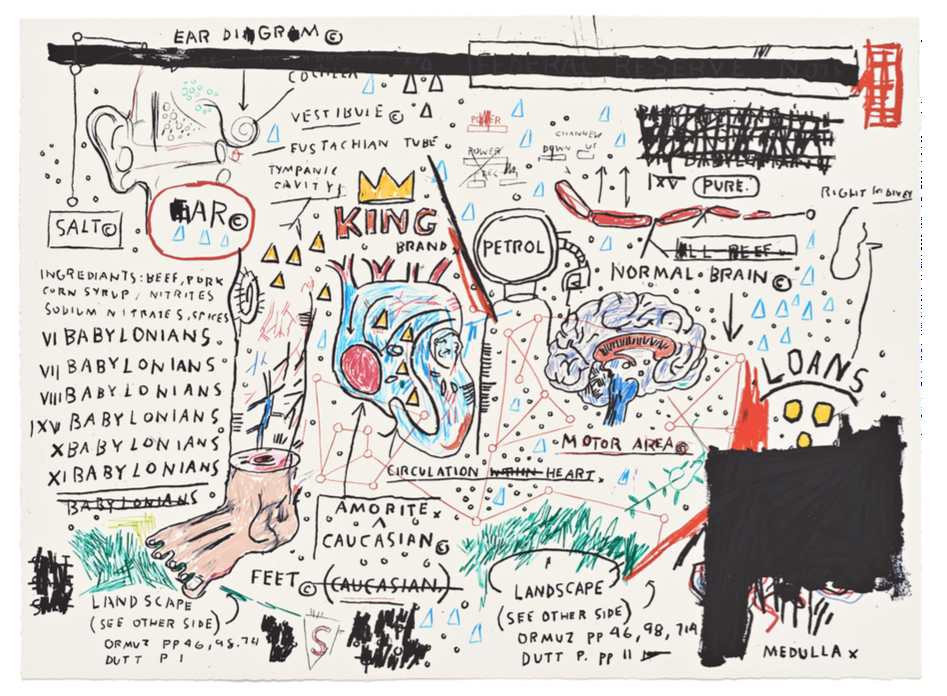 EAR DIAGRAM©
FEDERAL RESERVE NOTE
COCHLEA
VESTIBULE©
EUSTACHIAN TUBE
TYMPANIC
CAVITY
POWER
CHANNEL
POWER
DOWN UP
REC
IXV PURE.
EAR©
SALT©
KING
BRAND
PETROL
ALL BEEF
NORMAL BRAIN©
INGREDIANTS: BEEF, PORK
CORN SYRUP, NITRITES
SODIUM NITRATES, SPICES
VI BABYLONIANS.
VII BABYLONIANS
VIII BABYLONIANS
IXV BABYLONIANS
X BABYLONIANS
XI BABYLONIANS
BABYLONIANS
LOANS
MOTOR AREA©
CIRCULATION WITHIN HEART.
AMORITE x
CAUCASIAN©
FEET© (CAUCASIAN)
S
LANDSCAPE
(SEE OTHER SIDE)
ORMUZ PP 46, 98, 714
DUTT P 1
LANDSCAPE
(SEE OTHER SIDE)
ORMUZ PP 46, 98, 714
DUTT P. PP 11
MEDULLA x